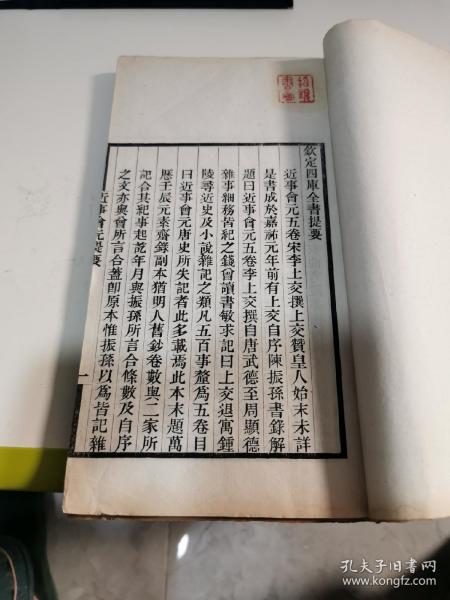 欽定四庫全書提要
近事會元五卷宋李上交撰上交贊皇人始末未詳
是書成於嘉祐元年前有上交自序陳振孫書錄解
題曰近事會元五卷李上交撰自唐武德至周顯德
雜事細務皆紀之錢曾讀書敏求記曰上交退寓鍾
陵尋近史及小說雜記之類凡五百事釐爲五卷目
曰近事會元唐史所失記者此多載焉此本末題萬
厯壬辰元素齋錄副本猶明人舊鈔卷數與二家所
記合其紀事起訖年月與振孫所言合條數及自序
之文亦與曾所言合蓋卽原本惟振孫以爲皆記雜
近事會元提要
一
孔夫子旧书网
www.kongfz.com